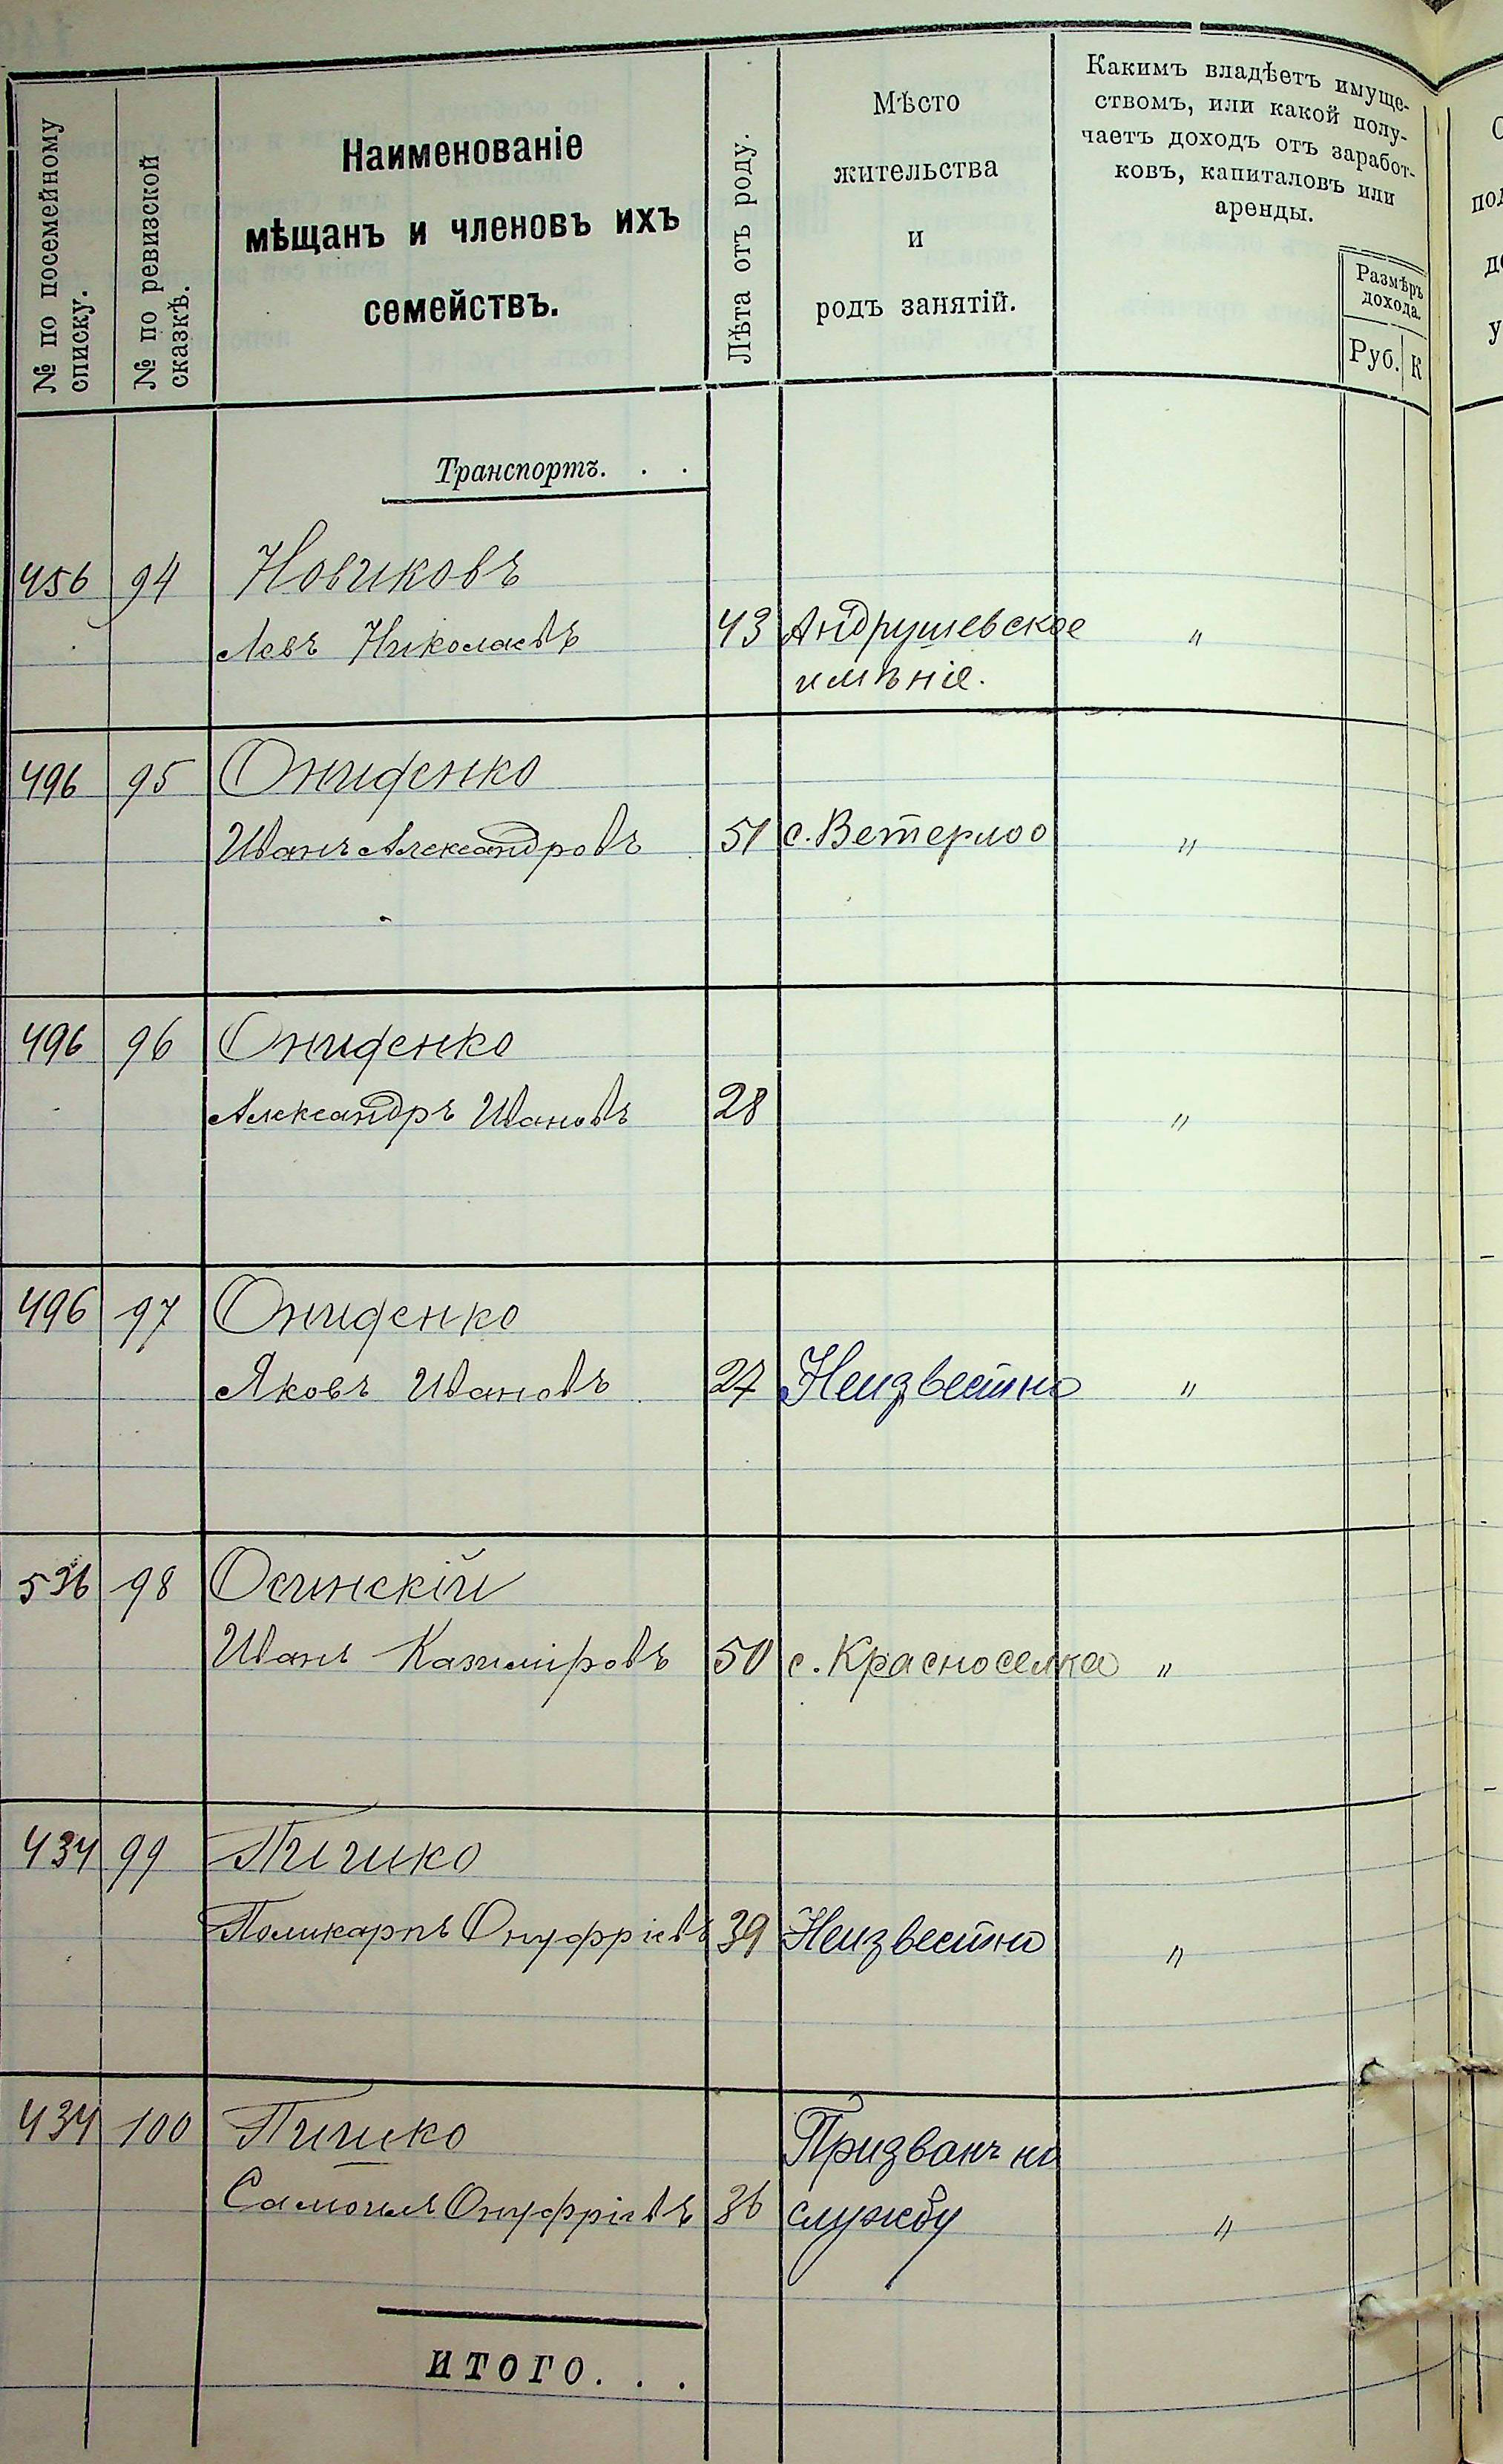 № по посемейному
списку.
№ по ревизской
сказкѣ.
Наименованіе
мѣщанъ и членовъ ихъ
семействъ.
Лѣта отъ роду.
Мѣсто
жительства
и
родъ занятій.
Какимъ владѣетъ имуще-
ствомъ, или какой полу-
чаетъ доходъ отъ заработ-
ковъ, капиталовъ или
аренды.
Размѣръ
дохода.
Руб. К
Транспортъ. . .
456 94 Новиковъ
Левъ Николаевъ 43 Андрушевское "
имѣніе.
496 95 Ониденко
Иванъ Александровъ 51 с. Ветерлоо "
496 96 Ониденко
Александръ Ивановъ 28 "
496 97 Ониденко
Яковъ Ивановъ 27 Неизвестно "
536 98 Осинскій
Иванъ Казиміровъ 50 с. Красноселка "
434 99
Поликарпъ Онуфріевъ 39 Неизвестно "
434 100 Призванъ на
Самоилъ Онуфріевъ 36 службу "
ИТОГО. . .